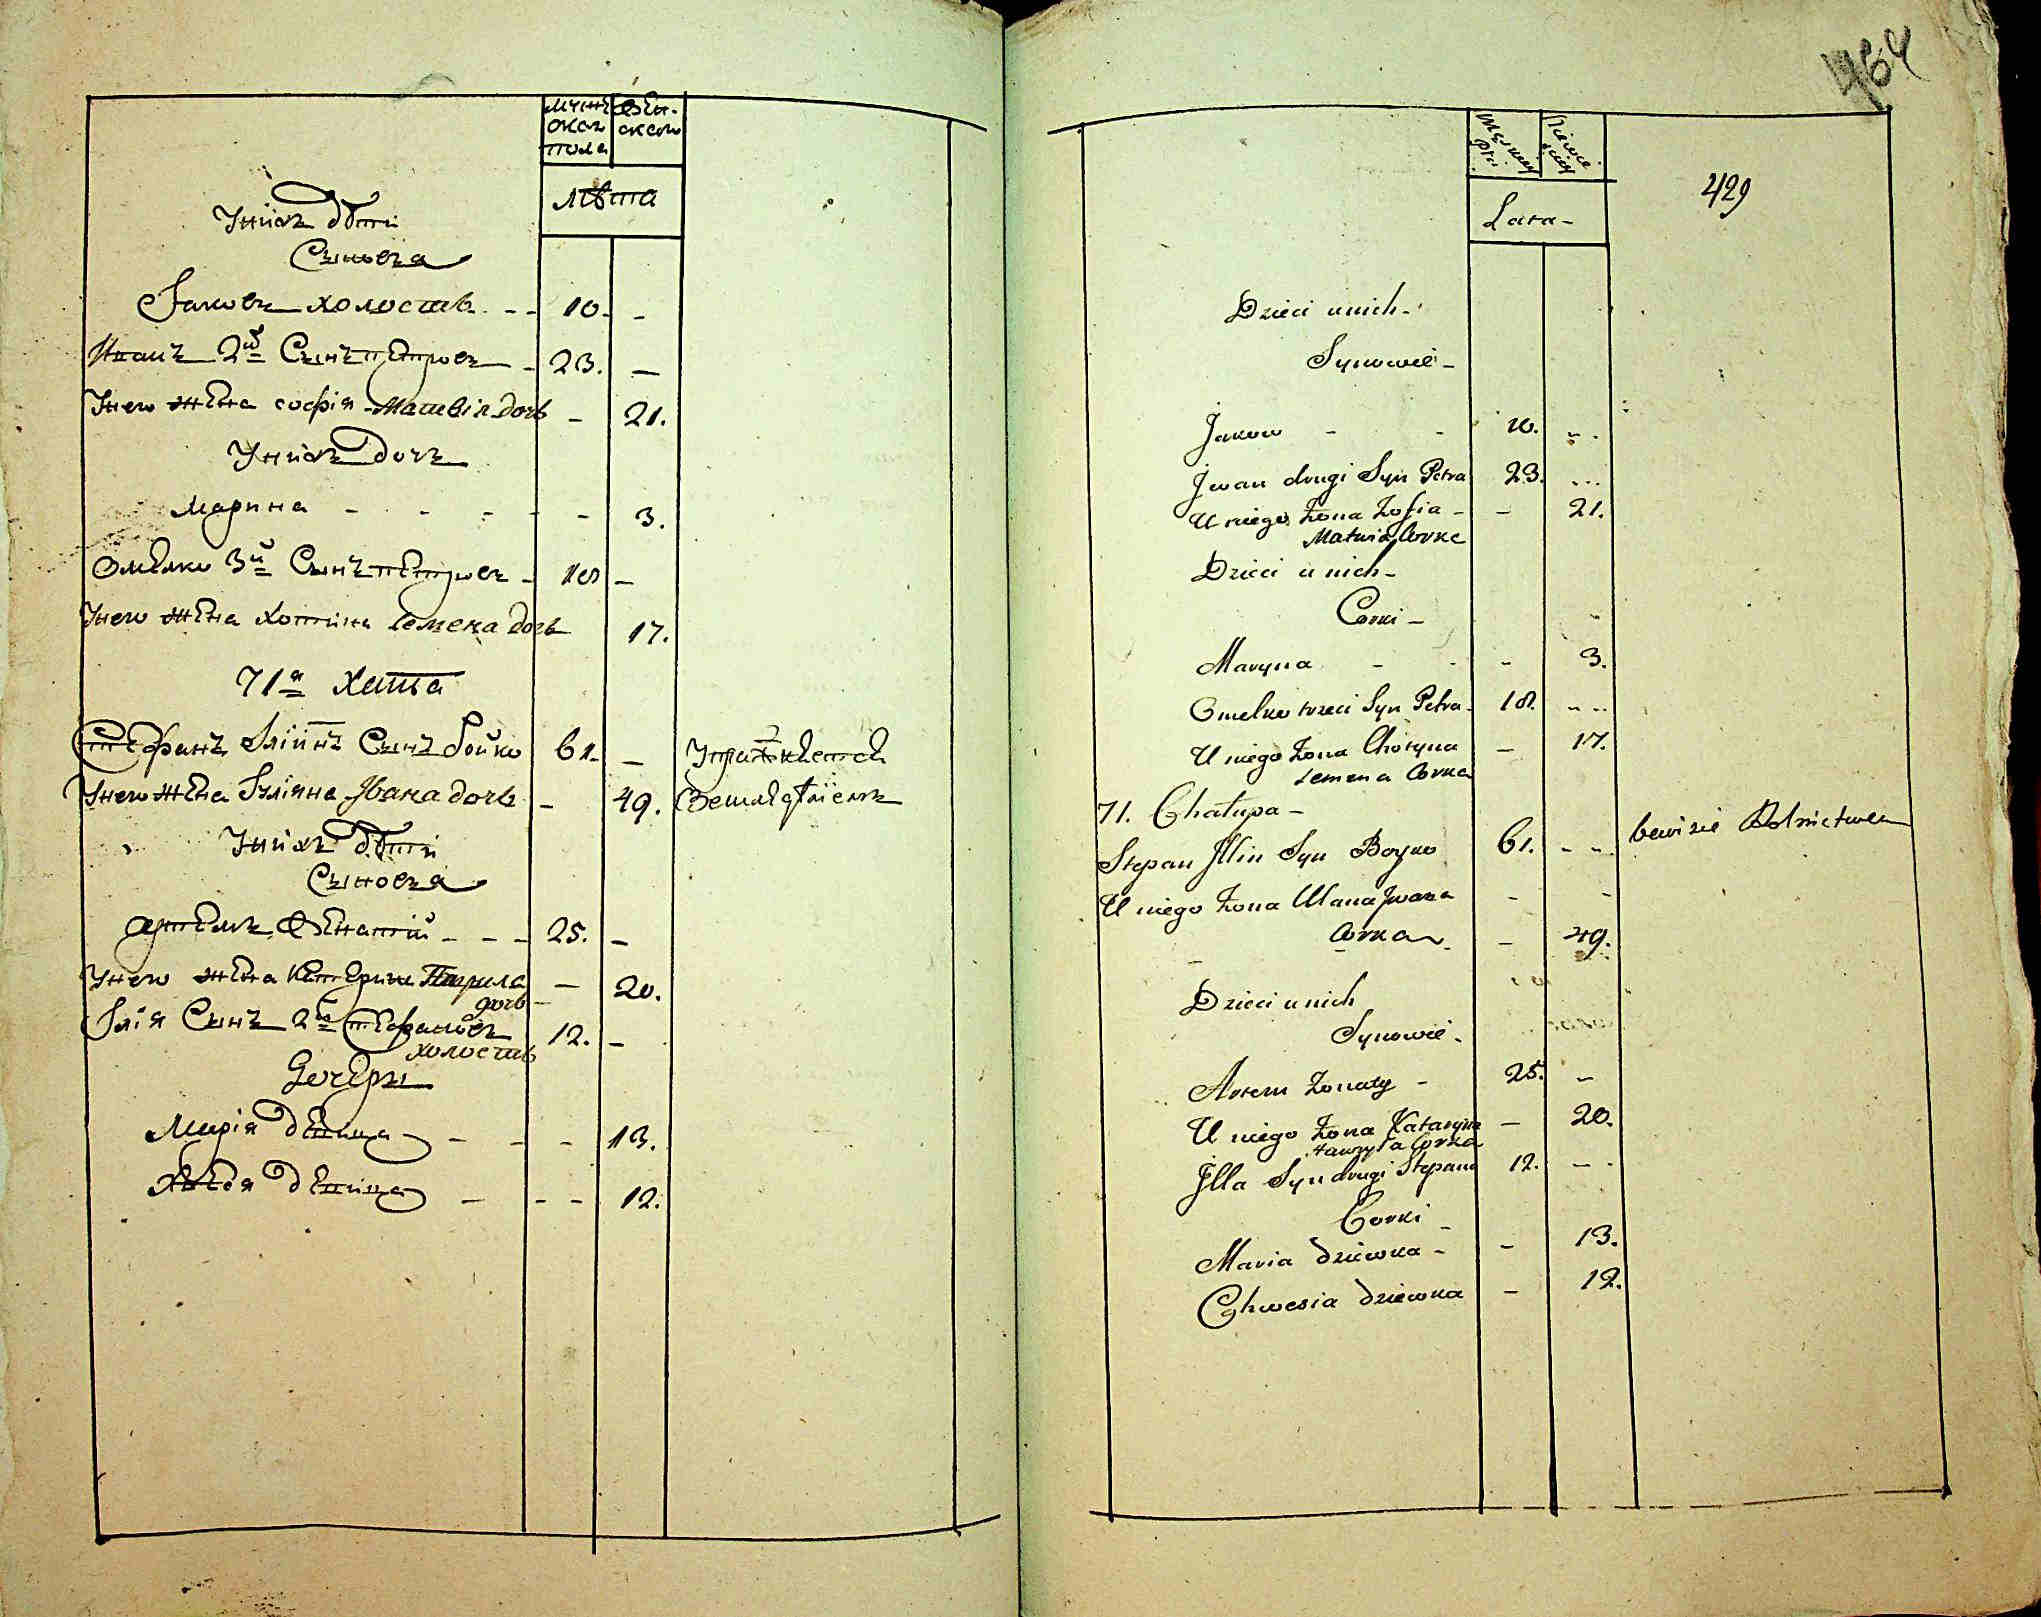 мужеск пола
женскаго
лѣта
Унихъ дѣти
Сыновья
Іаковъ холостъ - - 10. -
Иванъ 2й Сынъ Петровъ - 23. -
Унего жена софія Матвія дочь - 21.
Унихъ дочь
Марина - - - - - 3.
Омелко 3й Сынъ Петровъ - 18 -
Унего жена Хотина Семена дочь 17.
71я Хата
Стефанъ Іліинъ Сынъ Бойко 61. - Упражняется
Унего жена Іуліяна Івана дочь - 49. Земледѣліемъ
Унихъ дѣти
Сыновья
Артемъ Женатій - - - 25. -
Унего жена Катерина Гаврила - 20.
дочь -
Ілія Сынъ 2й Стефановъ 12. -
холостъ
Дочери
Марія дѣвица - - - 13.
Хведя дѣвица - - - 12.
464
Męskiey Płci
Żeńskiey
Lata -
429
Dzieci u nich -
Synowie -
Jakow - - 10. - -
Jwan drugi Syn Petra 23. ...
U niego Żona Zofia - - 21.
Matwia Corka
Dzieci u nich -
Corki - -
Maryna - - - 3.
Omelko trzeci Syn Petra - 18. - -
U niego Żona Chotyna - 17.
Semena Corka
71. Chałupa -
Stepan Jllin Syn Boyko 61. - - bawi sie Rolnictwem
U niego Żona Ulana Jwana - -
Corka - - 49.
Dzieci u nich
Synowie -
Artem Żonaty - 25. -
U niego Żona Kataryna - 20.
Hawryła Corka
Jlla Syn drugi Stepana 12. - -
Corki -
Maria dziewka - - 13.
Chwesia dziewka - 12.